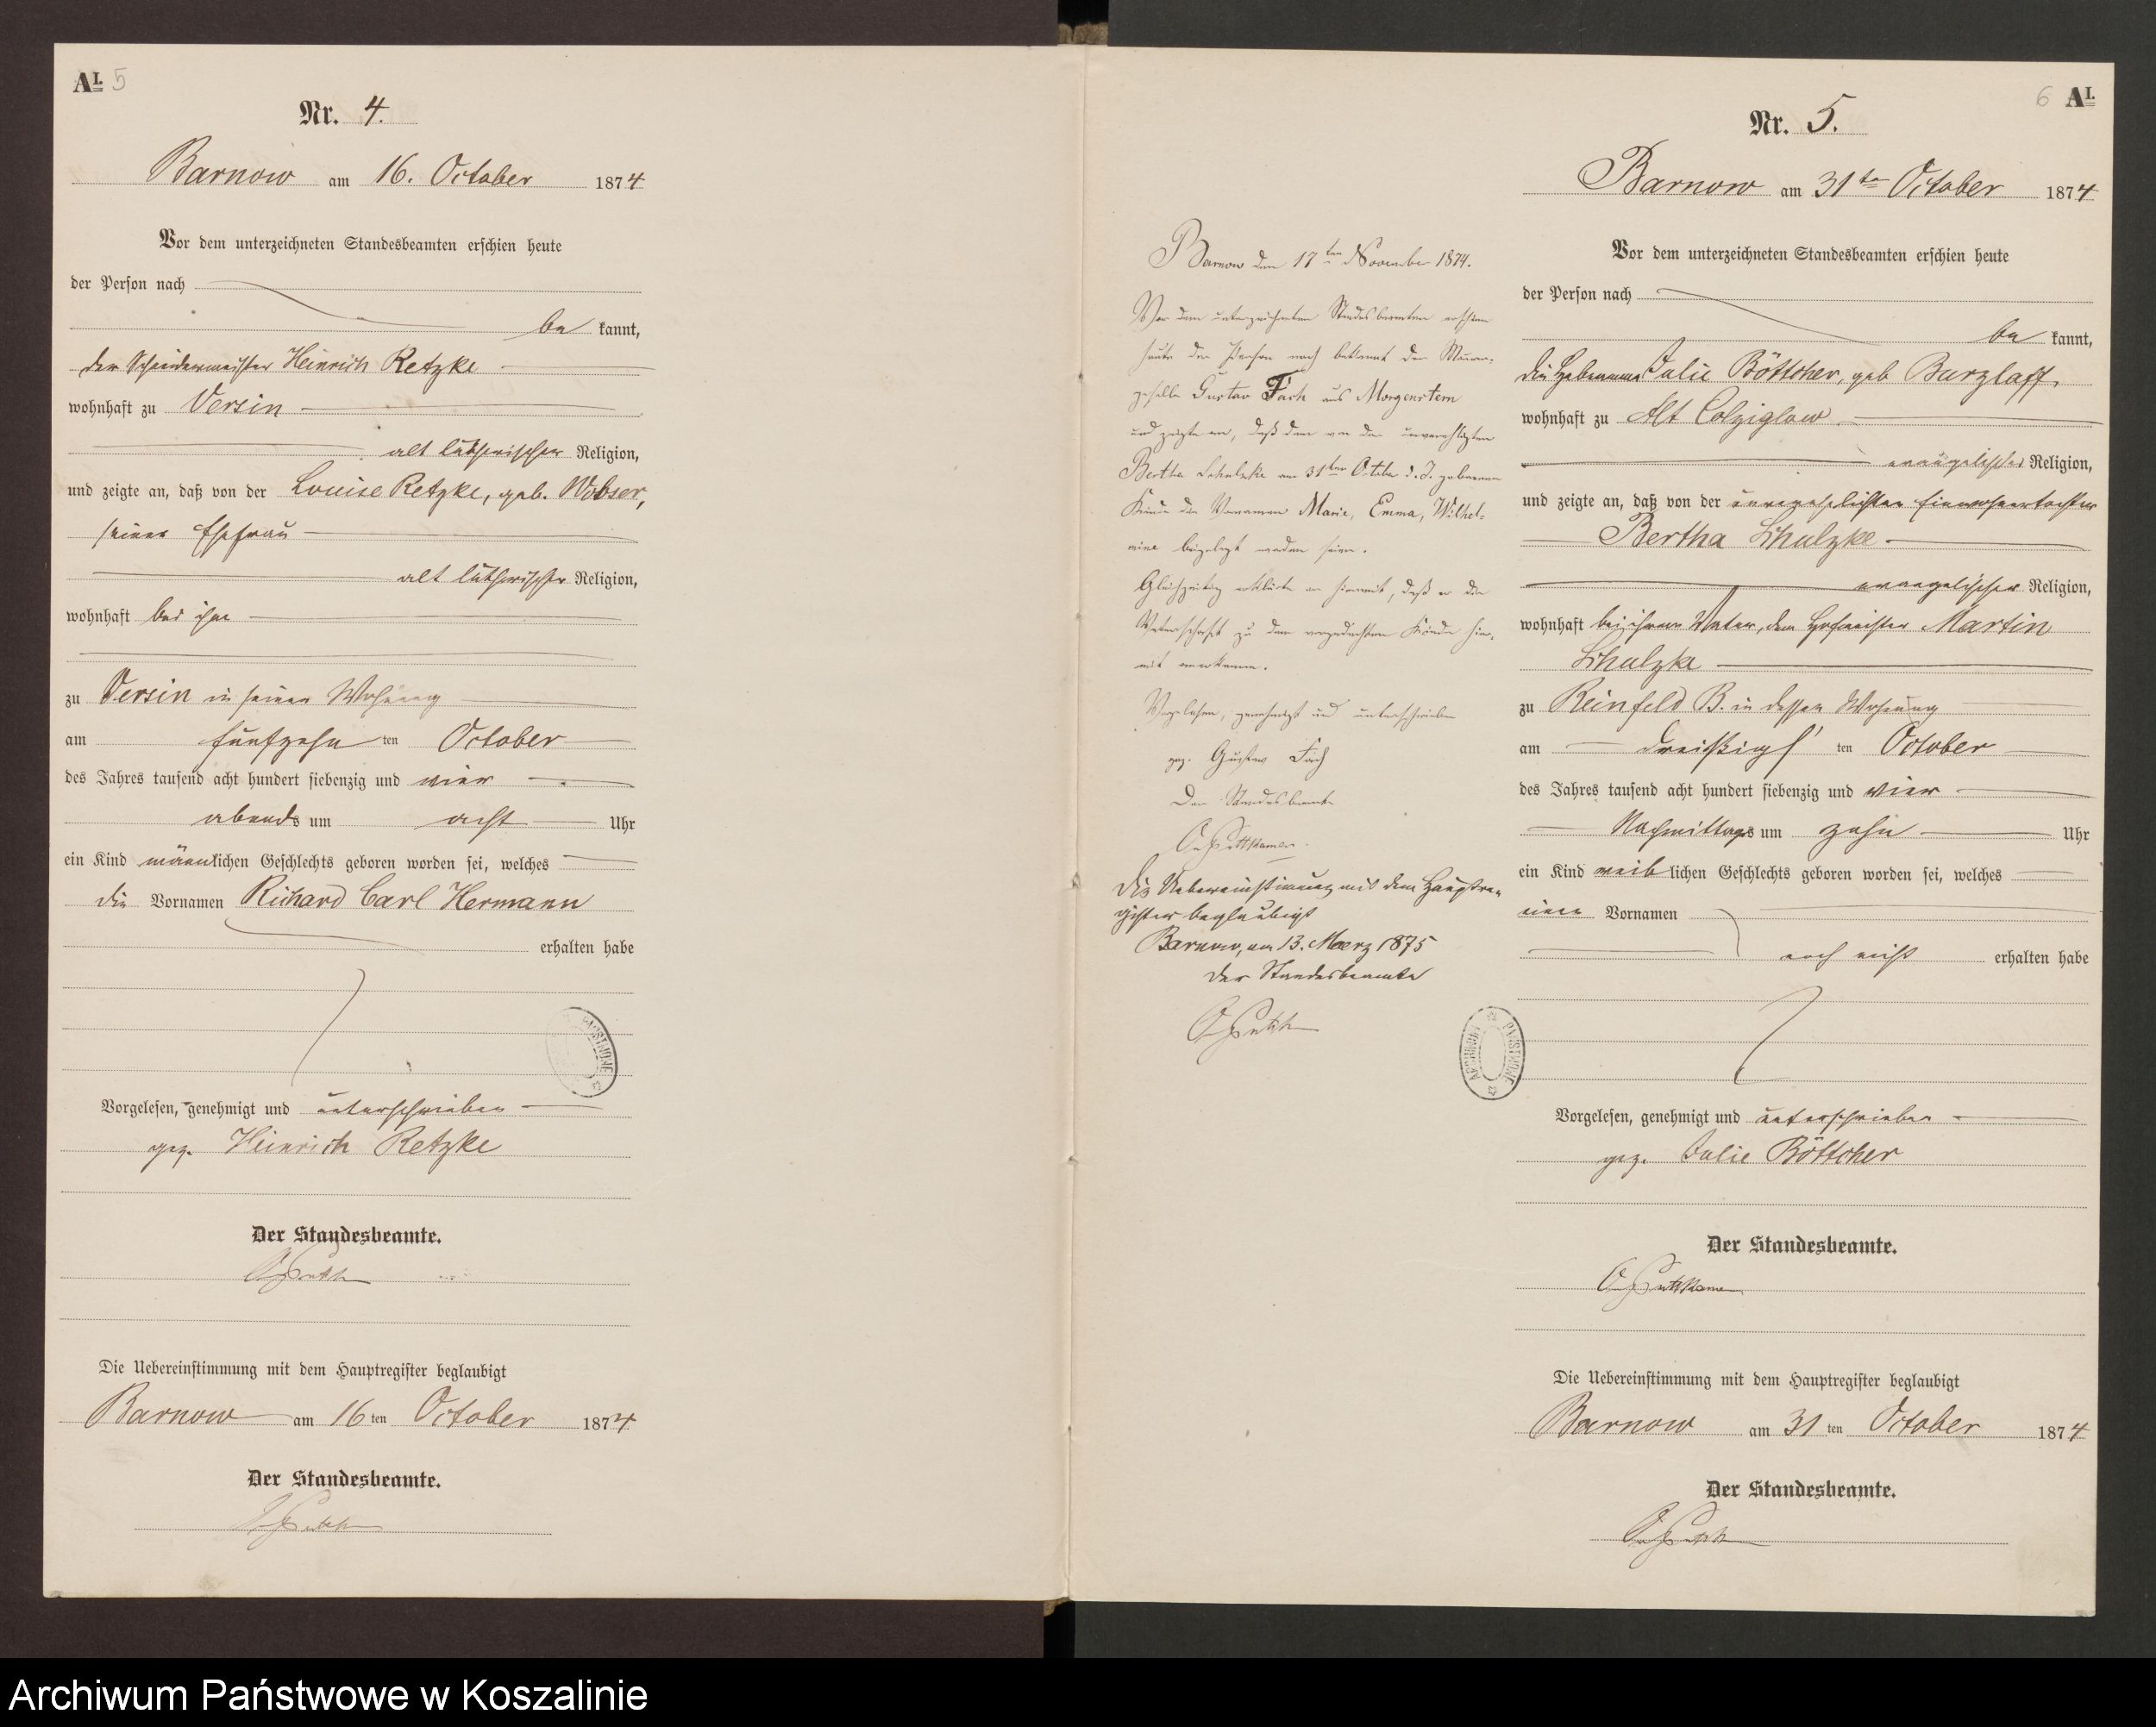 AI. 5
Nr. 4.
Barnow am 16. October 1874
Vor dem unterzeichneten Standesbeamten erschien heute
der Person nach
be kannt,
der Schneidermeister Heinrich Retzke
wohnhaft zu Versin
alt lutherischer Religion,
und zeigte an, daß von der Louise Retzke, geb. Wobser,
seiner Ehefrau
alt lutherischer Religion,
wohnhaft bei ihm
zu Versin in seiner Wohnung
am fünfzehn ten October
des Jahres tausend acht hundert siebenzig und vier
abends um acht Uhr
ein Kind männlichen Geschlechts geboren worden sei, welches
die Vornamen Richard Carl Hermann
erhalten habe
Vorgelesen, genehmigt und unterschrieben
gez. Heinrich Retzke
Der Standesbeamte.
Die Uebereinstimmung mit dem Hauptregister beglaubigt
Barnow am 16 ten October 1874
Der Standesbeamte.
Barnow den 17ten November 1874.
Vor dem unterzeichneten Standesbeamten erschien
heute der Person nach bekannt der Maurer-
geselle Gustav Fach aus Morgenstern
und zeigte an, daß dem von der unverehlichten
Bertha Schulzke am 31ten October d. J. geborenen
Kinde die Vornamen Marie, Emma, Wilhel-
mine beigelegt worden seien.
Gleichzeitig erklärte er hiermit, daß er die
Vaterschaft zu dem vorgedachten Kinde hier-
mit anerkenne.
Vorgelesen, genehmigt und unterschrieben
gez. Gustav Fach
Der Standesbeamte
Puttkamer.
Die Uebereinstimmung mit dem Hauptre-
gister beglaubigt
Barnow, am 13. Maerz 1875
Der Standesbeamte
6 AI.
Nr. 5.
Barnow am 31ten October 1874
Vor dem unterzeichneten Standesbeamten erschien heute
der Person nach
be kannt,
die Hebamme Julie Böttcher, geb Burzlaff,
wohnhaft zu Alt Colziglow
evangelischer Religion,
und zeigte an, daß von der unverehelichten Einwohnertochter
Bertha Schulzke
evangelischer Religion,
wohnhaft bei ihrem Vater, dem Hofmeister Martin
Schulzke
zu Reinfeld B. in dessen Wohnung
am dreißigs ten October
des Jahres tausend acht hundert siebenzig und vier
Nachmittags um zehn Uhr
ein Kind weib lichen Geschlechts geboren worden sei, welches
einen Vornamen
noch nicht erhalten habe
Vorgelesen, genehmigt und unterschrieben
gez. Julie Böttcher
Der Standesbeamte.
Puttkamer
Die Uebereinstimmung mit dem Hauptregister beglaubigt
Barnow am 31 ten October 1874
Der Standesbeamte.
ARCHIWUM PAŃSTWOWE
Archiwum Państwowe w Koszalinie